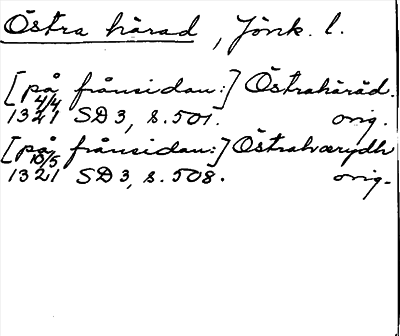 Östra härad, Jönk. l.
[på frånsidan:] Östrahäräd.
1321 4/4 SD 3, s. 501. orig.
[på frånsidan:] Östrahærydh
1321 10/5 SD 3, s. 508. orig.